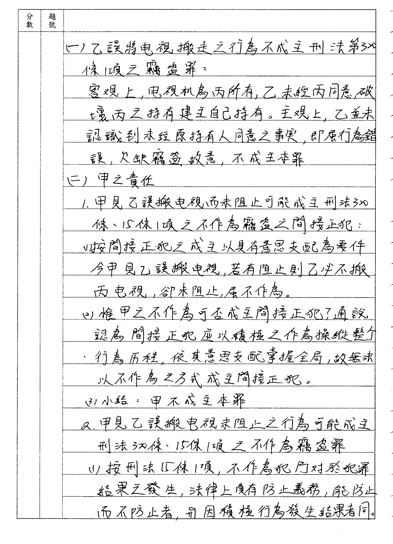 分數 題號
(一) 乙誤將电視搬走之行為不成立刑法第320
條1項之竊盜罪：
客观上，电視机為丙所有，乙未經丙同意，破
壞丙之持有建立自己持有。主观上，乙並未
認識到未經原持有人同意之事实，即屬行為錯
誤，欠缺竊盜故意，不成立本罪
(二) 甲之責任
1. 甲見乙誤搬电視而未阻止可能成立刑法320
條、15條1項之不作為竊盜之間接正犯：
(1)按間接正犯之成立以具有意思支配為要件
今甲見乙誤搬电視，若有阻止則乙必不搬
丙电視，卻未阻止，屬不作為。
(2) 惟甲之不作為可否成立間接正犯？通說
認為間接正犯應以積極之作為操縱整个
行為历程，依其意思支配掌握全局，故無法
以不作為之方式成立間接正犯。
(3) 小結：甲不成立本罪
2. 甲見乙誤搬电視未阻止之行為可能成立
刑法320條、15條1項之不作為竊盜罪
(1) 按刑法15條1項，不作為犯乃對於犯罪
結果之發生，法律上負有防止義務，能防止
而不防止者，与因積極行為發生結果者同。